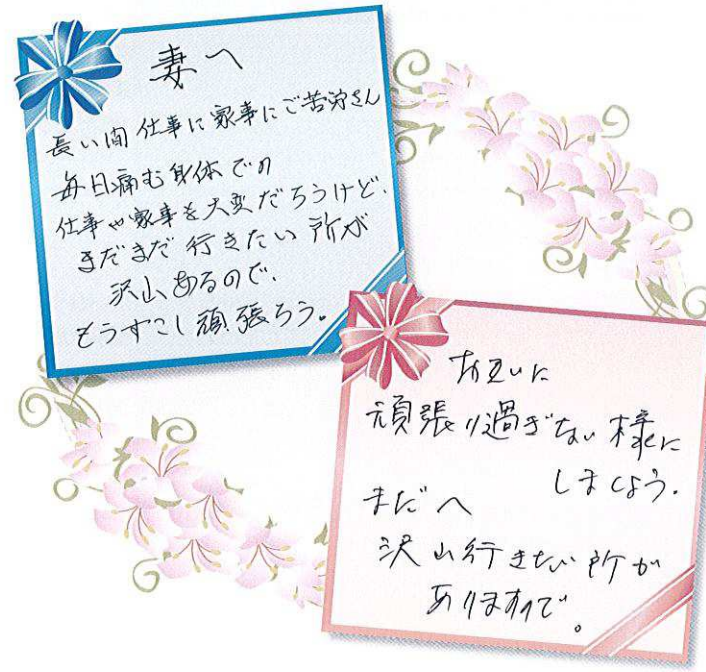 妻へ
長い間仕事に家事にご苦労さん
毎日痛む身体での
仕事や家事を大変だろうけど、
まだまだ行きたい所が
沢山あるので、
もうすこし頑張ろう。
お互いに
頑張り過ぎない様に
しましょう。
まだへ
沢山行きたい所が
ありますので。